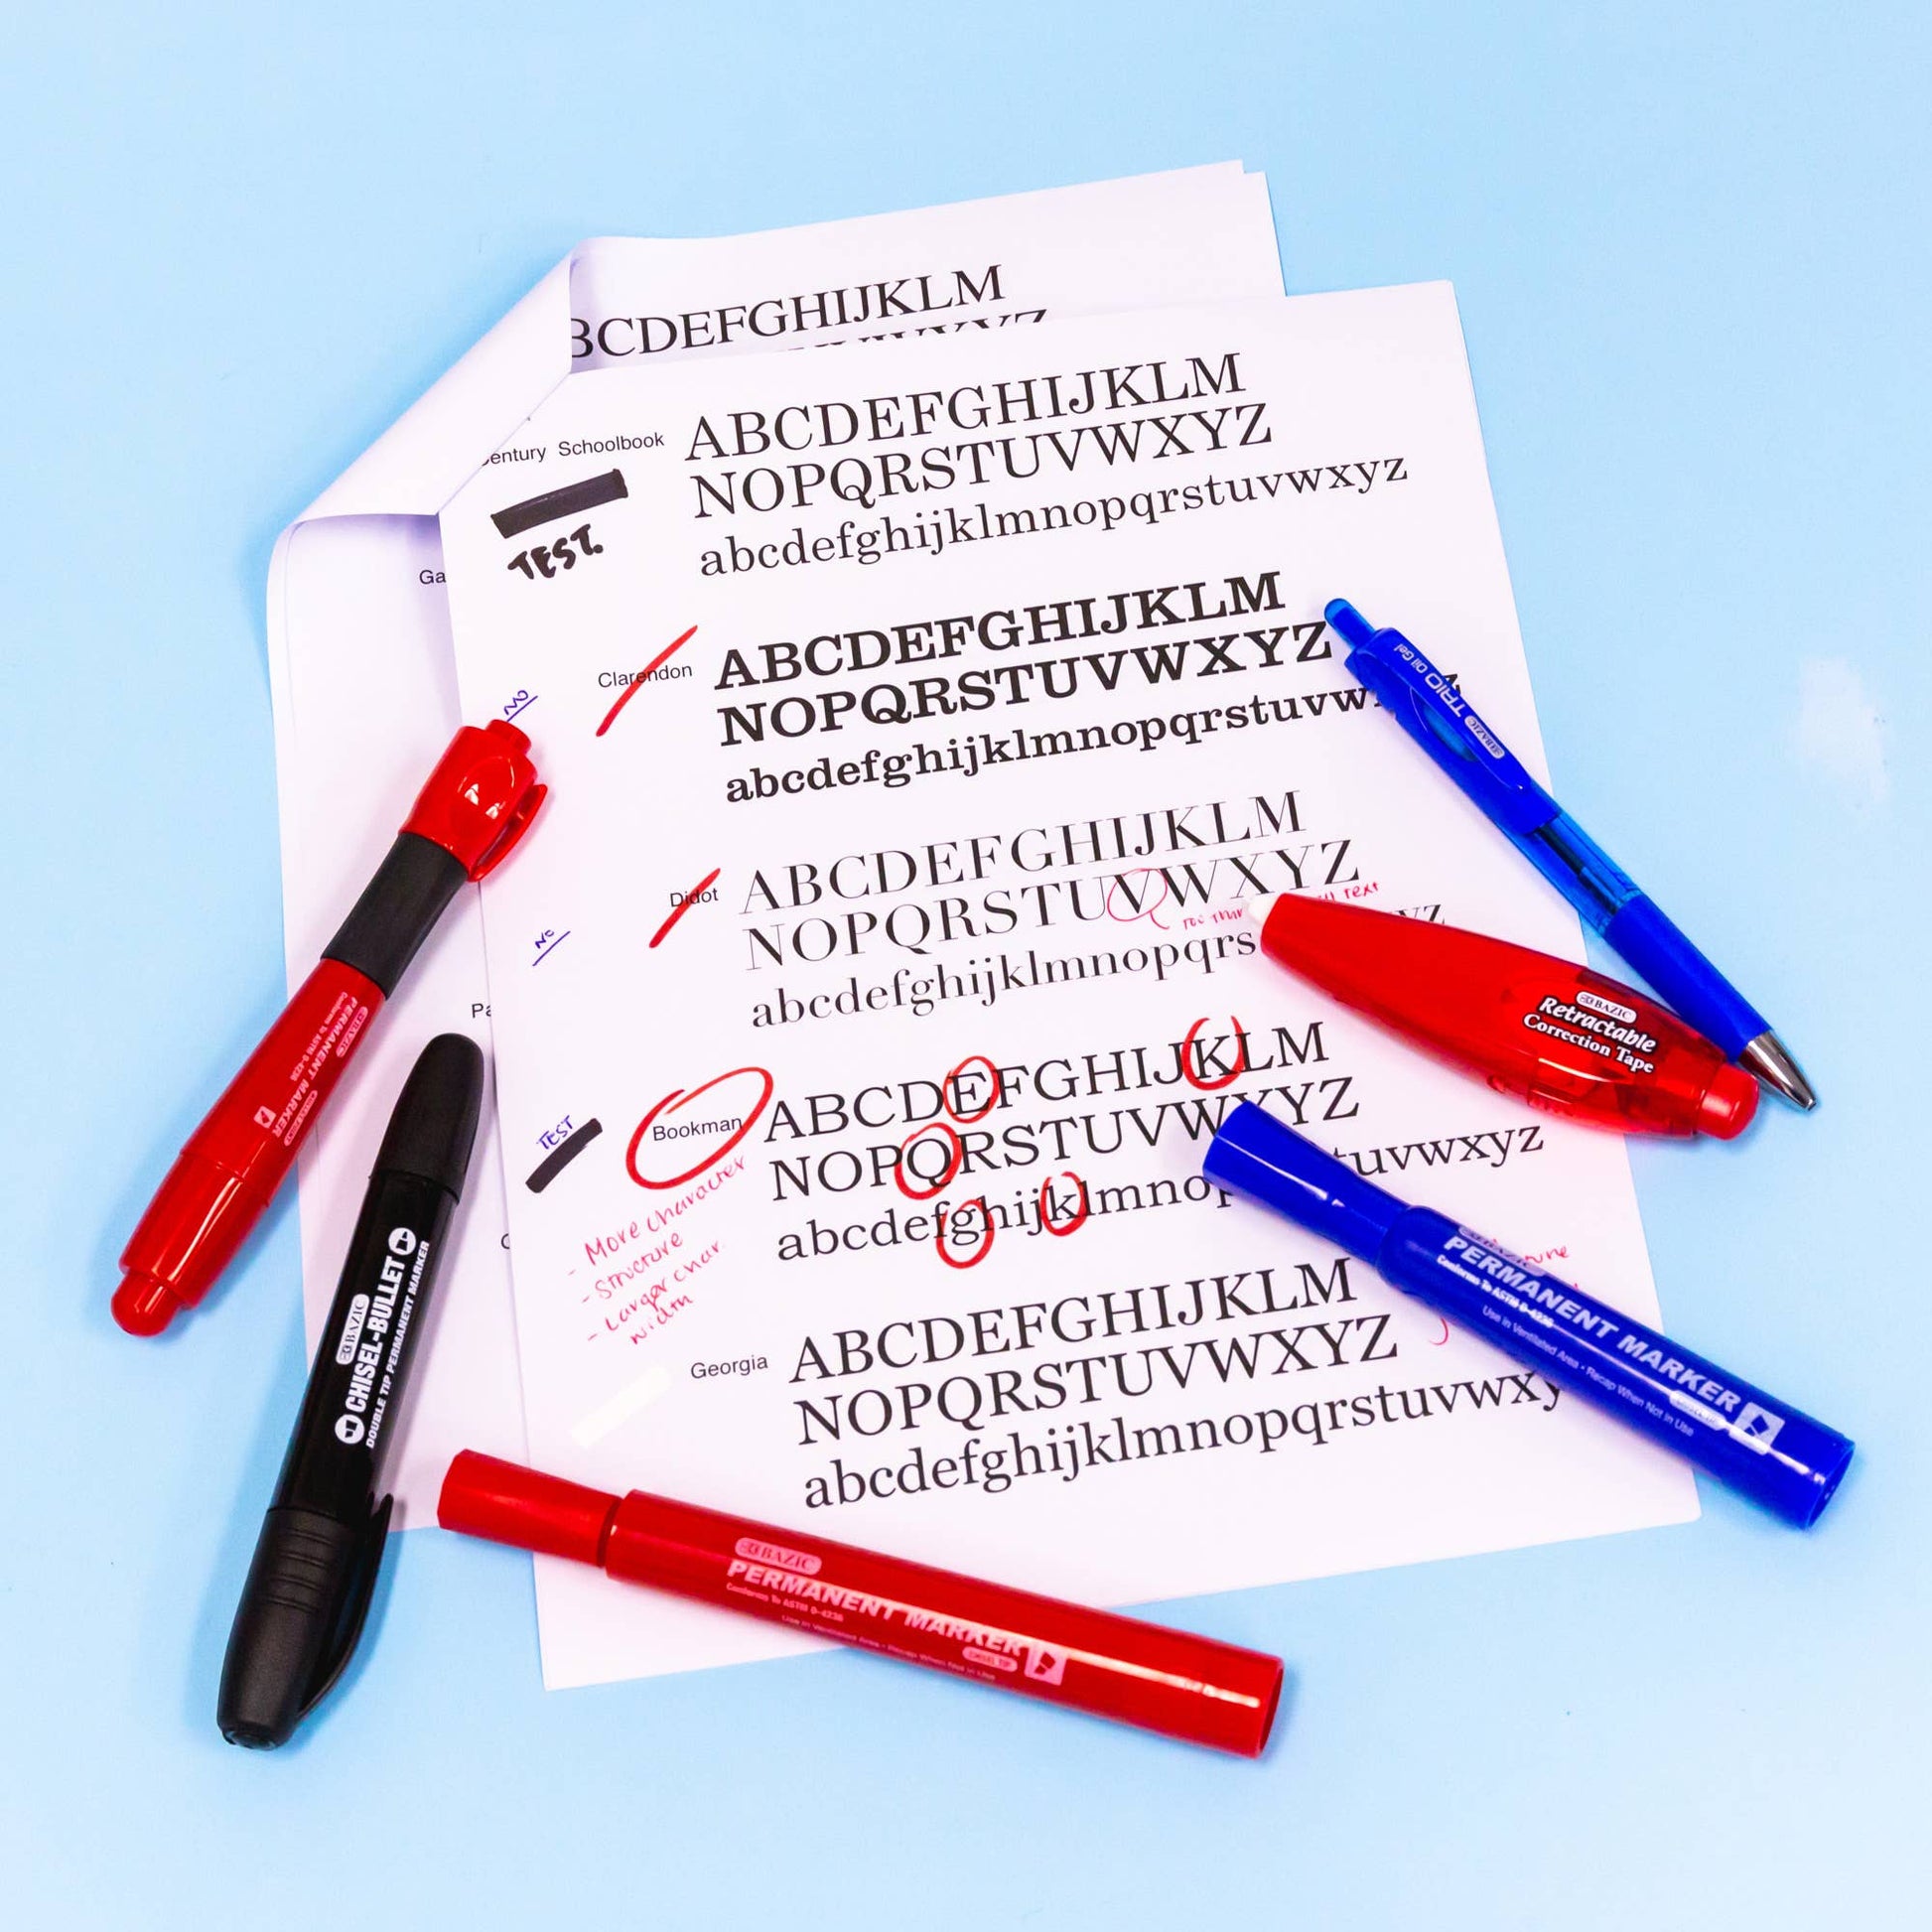 BCDEFGHIJKLM
Century Schoolbook
ABCDEFGHIJKLM
NOPQRSTUVWXYZ
abcdefghijklmnopqrstuvwxyz
TEST.
Ga
Clarendon
ABCDEFGHIJKLM
NOPQRSTUVWXYZ
abcdefghijklmnopqrstuvw
NO
Didot
ABCDEFGHIJKLM
NOPQRSTUVWXYZ
text
abcdefghijklmnopqrs yz
No
Pa
TEST
Bookman
ABCDEFGHIJKLM
NOPQRSTUVWXYZ
abcdefghijklmnop tuvwxyz
- More character
- Structure
- Larger char.
width
Georgia
ABCDEFGHIJKLM
NOPQRSTUVWXYZ
abcdefghijklmnopqrstuvwxy
BAZIC
TRIO Oil Gel
BAZIC
Retractable
Correction Tape
BAZIC
PERMANENT MARKER
Conforms To ASTM D-4236
Use in Ventilated Area • Recap When Not in Use
BAZIC
PERMANENT MARKER
Conforms To ASTM D-4236
BAZIC
CHISEL-BULLET
DOUBLE TIP PERMANENT MARKER
BAZIC
PERMANENT MARKER
Conforms To ASTM D-4236
Use in Ventilated Area • Recap When Not in Use
CHISEL TIP